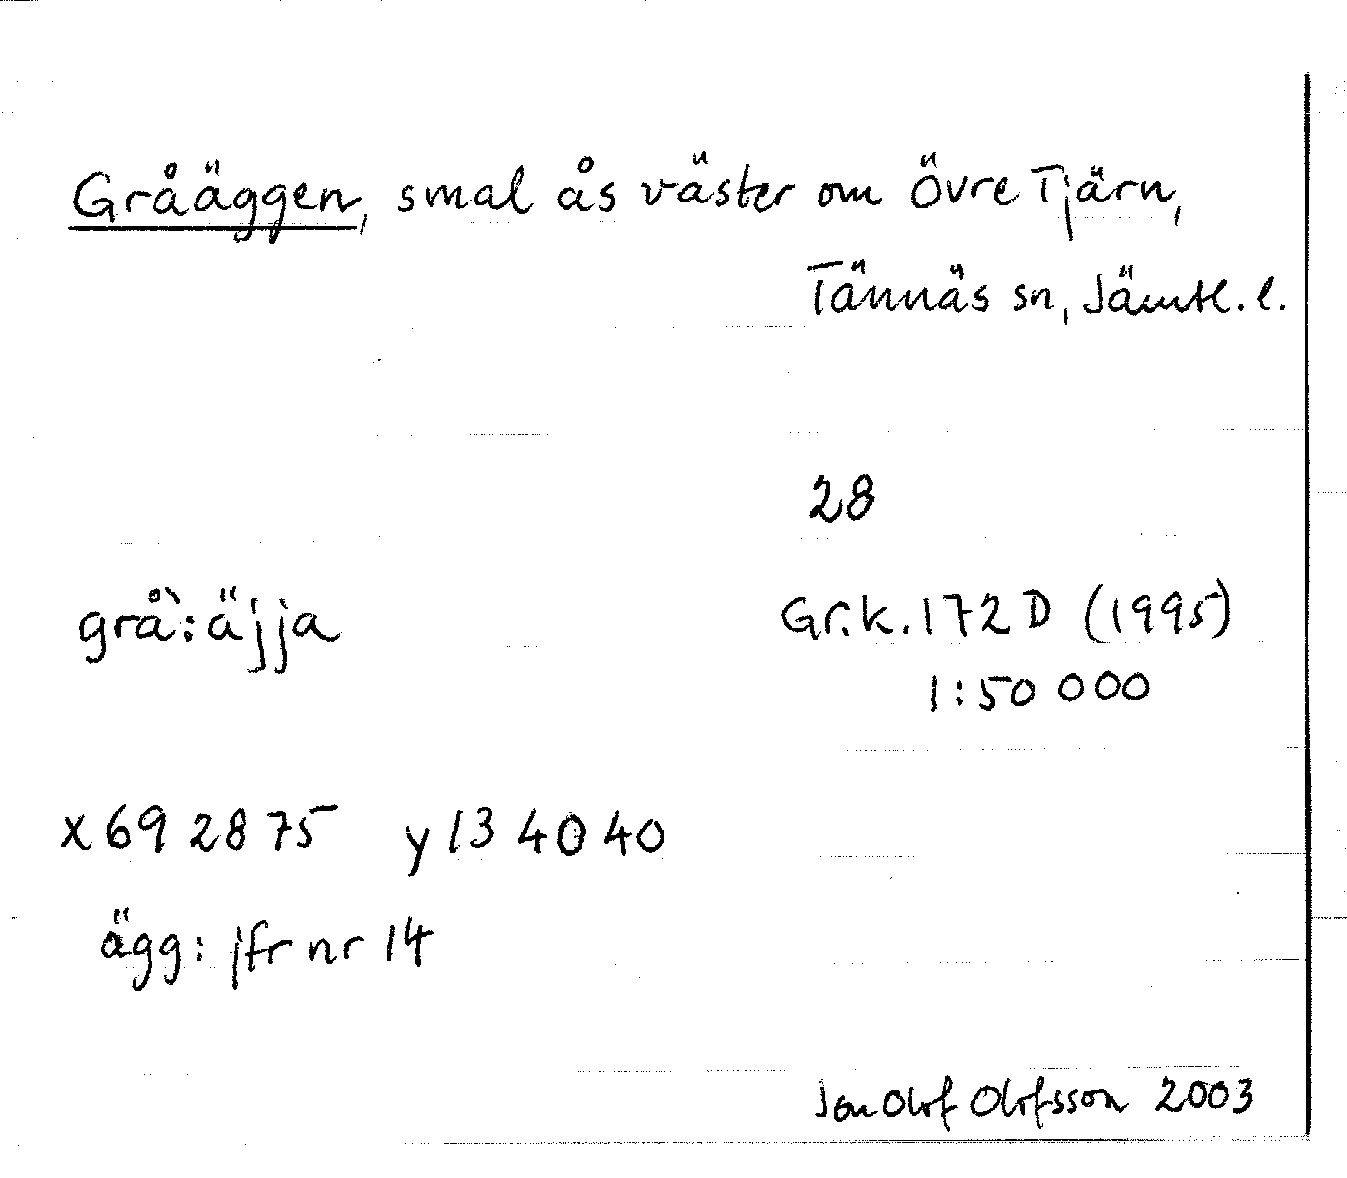 Gråäggen, smal ås väster om Övre Tjärn,
Tännäs sn, Jämtl. l.
28
grå\:äjja
Gr.k. 172 D (1995)
1:50 000
x 69 28 75 y 13 40 40
ägg: jfr nr 14
Jon Olof Olofsson 2003